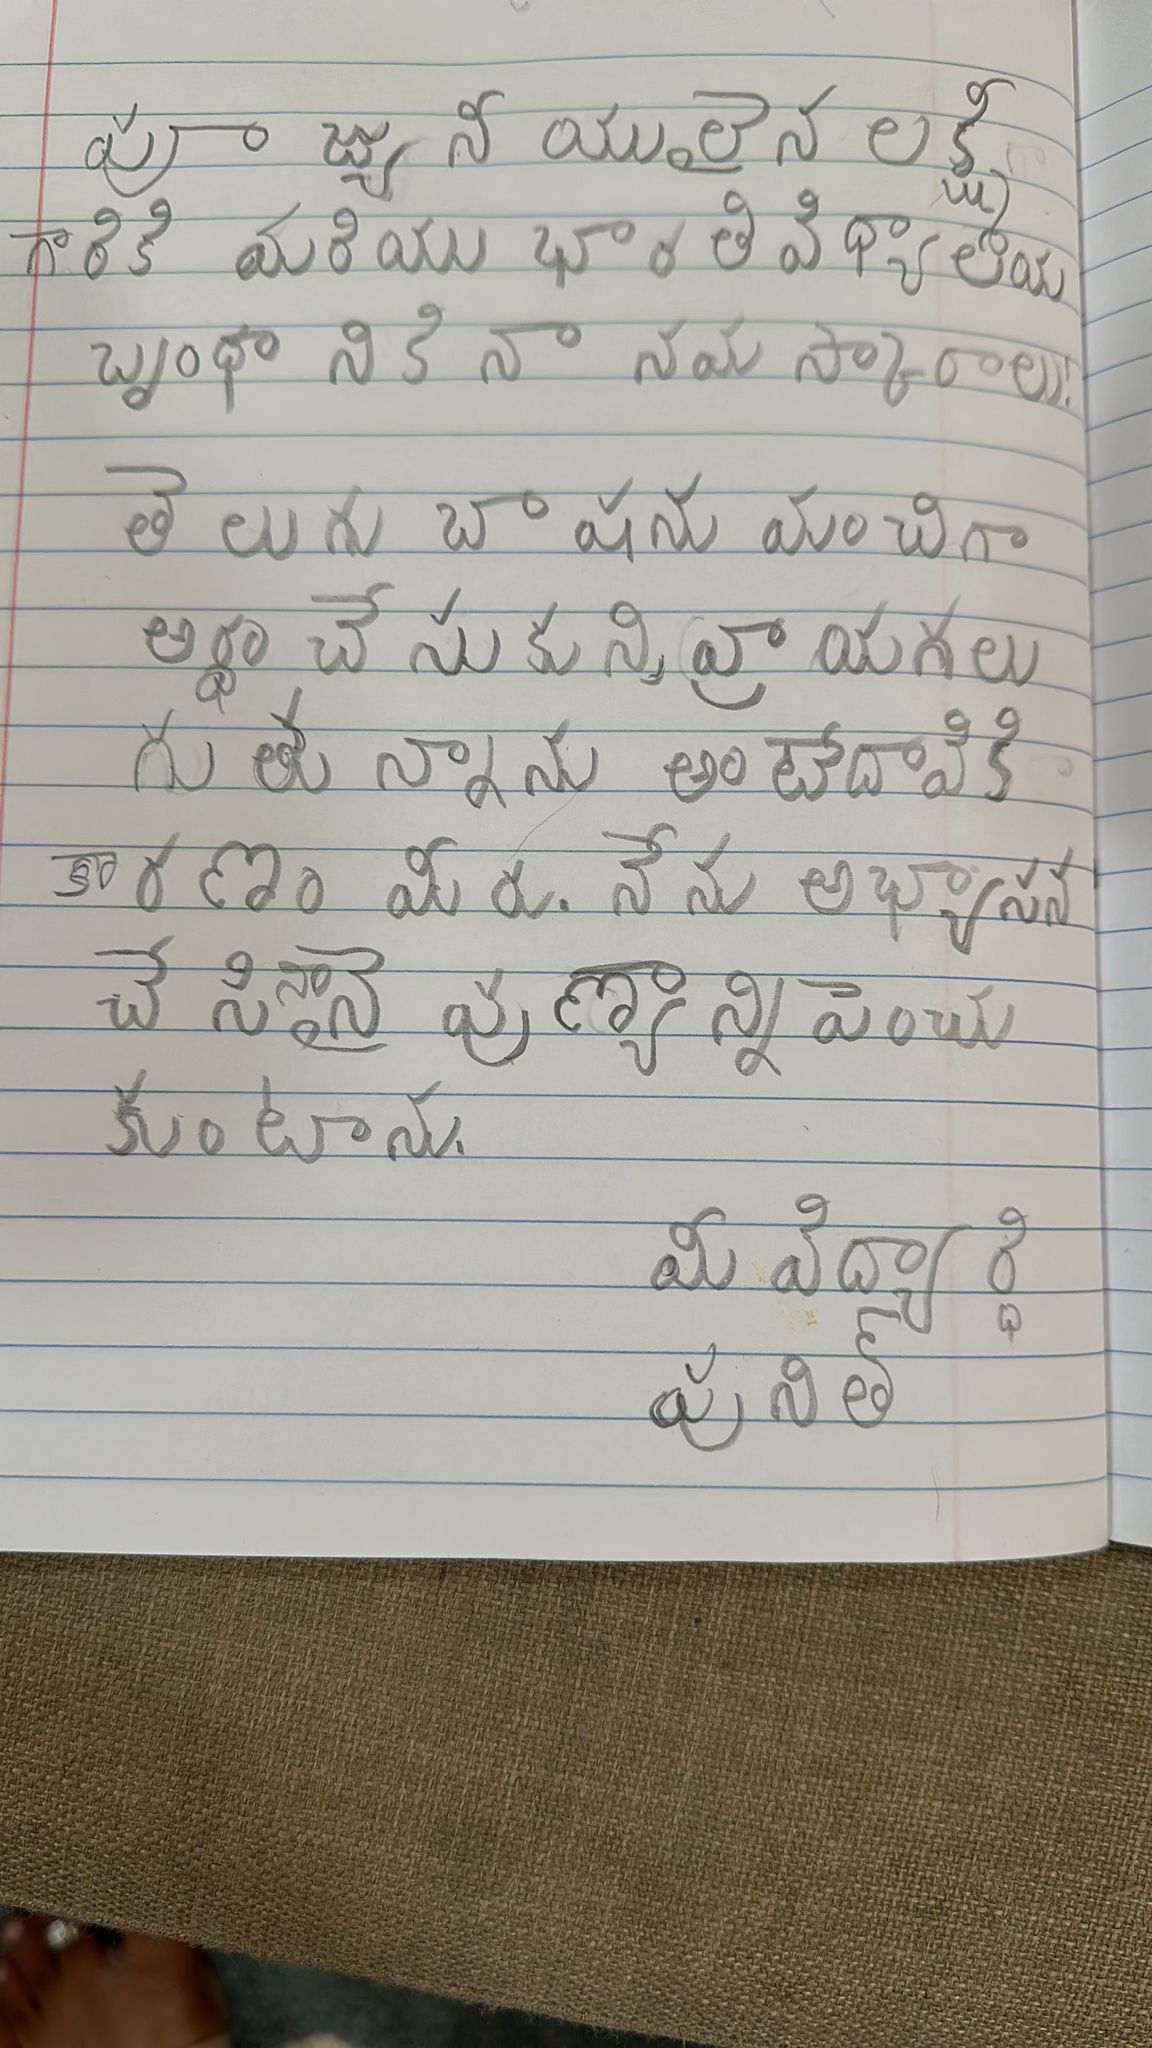 పురా జ్యనీ యులైన లక్ష్మి
గారికి మరియు భారతి విధ్యాలయ
బృంధా నికి నా నమ స్కారాలు!
తె లు గు బా షను మంచిగా
అర్థం చే సు కు ని, వ్రా యగలు
గు తు న్నాను అంటే దానికి
కారణం మీరు. నే ను అభ్యాసన
చే సి స్తానై పుణ్యాన్ని పెంచు
కుంటాను.
మీ విద్యార్థి
పునిత్